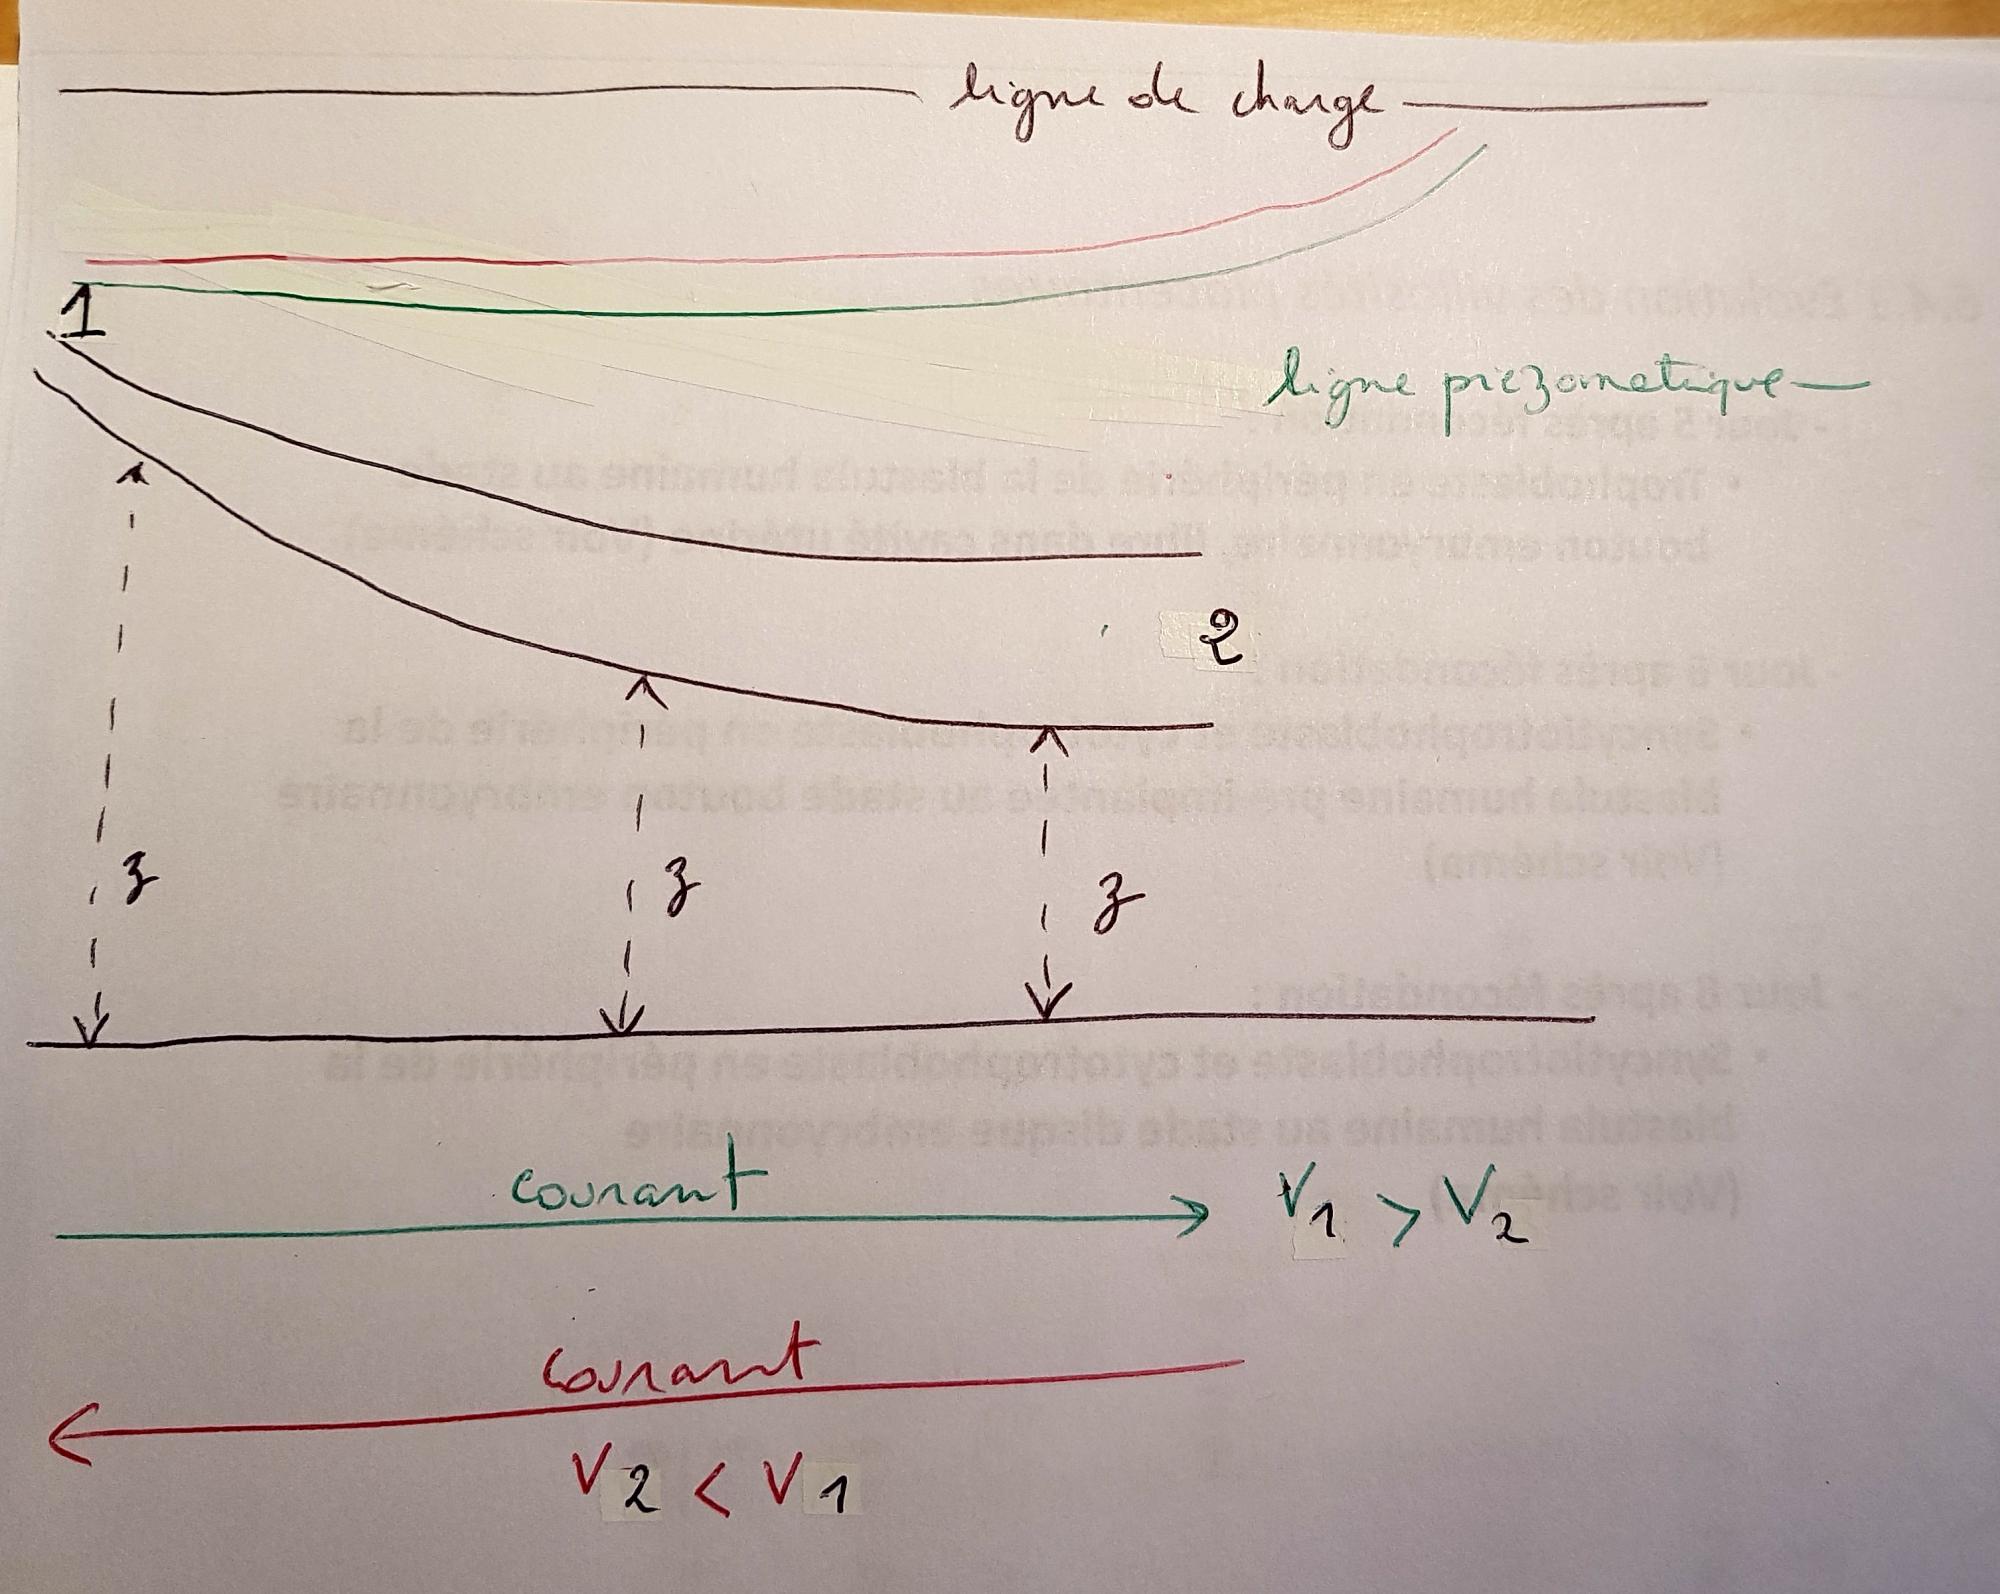 ligne de charge
1
ligne piezometrique
2
z z z
courant V1 > V2
courant
V2 < V1